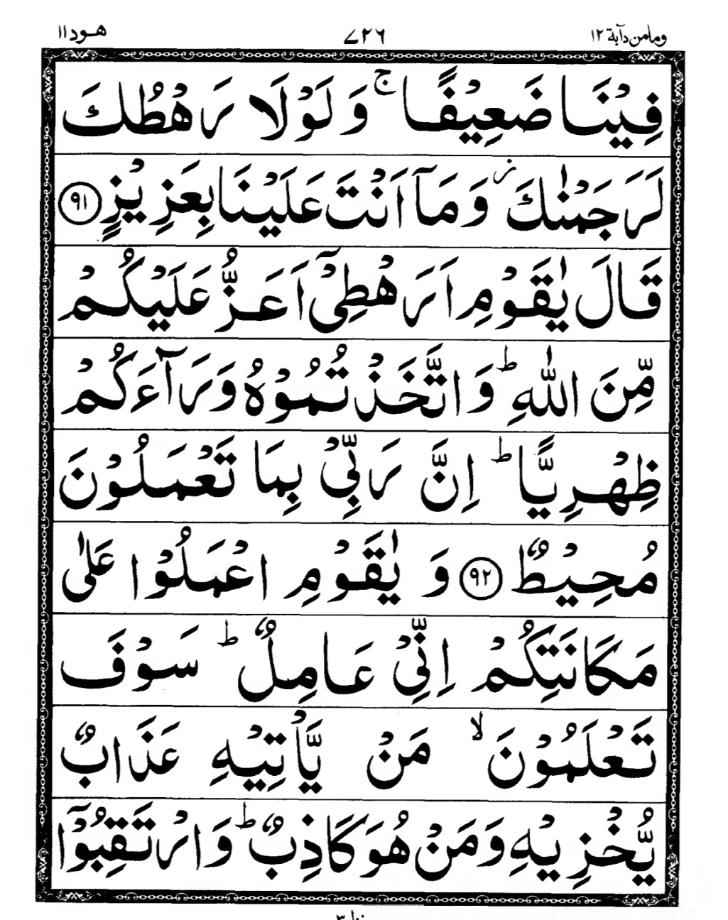 وما من دآبة ١٢ ٧٢٦ هود ١١
فِيْنَا ضَعِيْفًا ۚ وَلَوْلَا رَهْطُكَ
لَرَجَمْنٰكَ ۡ وَمَآ اَنْتَ عَلَيْنَا بِعَزِيْزٍ ﴿٩١﴾
قَالَ يٰقَوْمِ اَرَهْطِيْٓ اَعَزُّ عَلَيْكُمْ
مِّنَ اللّٰهِ ؕ وَاتَّخَذْتُمُوْهُ وَرَآءَكُمْ
ظِهْرِيًّا ؕ اِنَّ رَبِّيْ بِمَا تَعْمَلُوْنَ
مُحِيْطٌ ﴿٩٢﴾ وَ يٰقَوْمِ اعْمَلُوْا عَلٰى
مَكَانَتِكُمْ اِنِّيْ عَامِلٌ ؕ سَوْفَ
تَعْلَمُوْنَ ۙ مَنْ يَّاْتِيْهِ عَذَابٌ
يُّخْزِيْهِ وَمَنْ هُوَ كَاذِبٌ ؕ وَارْتَقِبُوْٓا